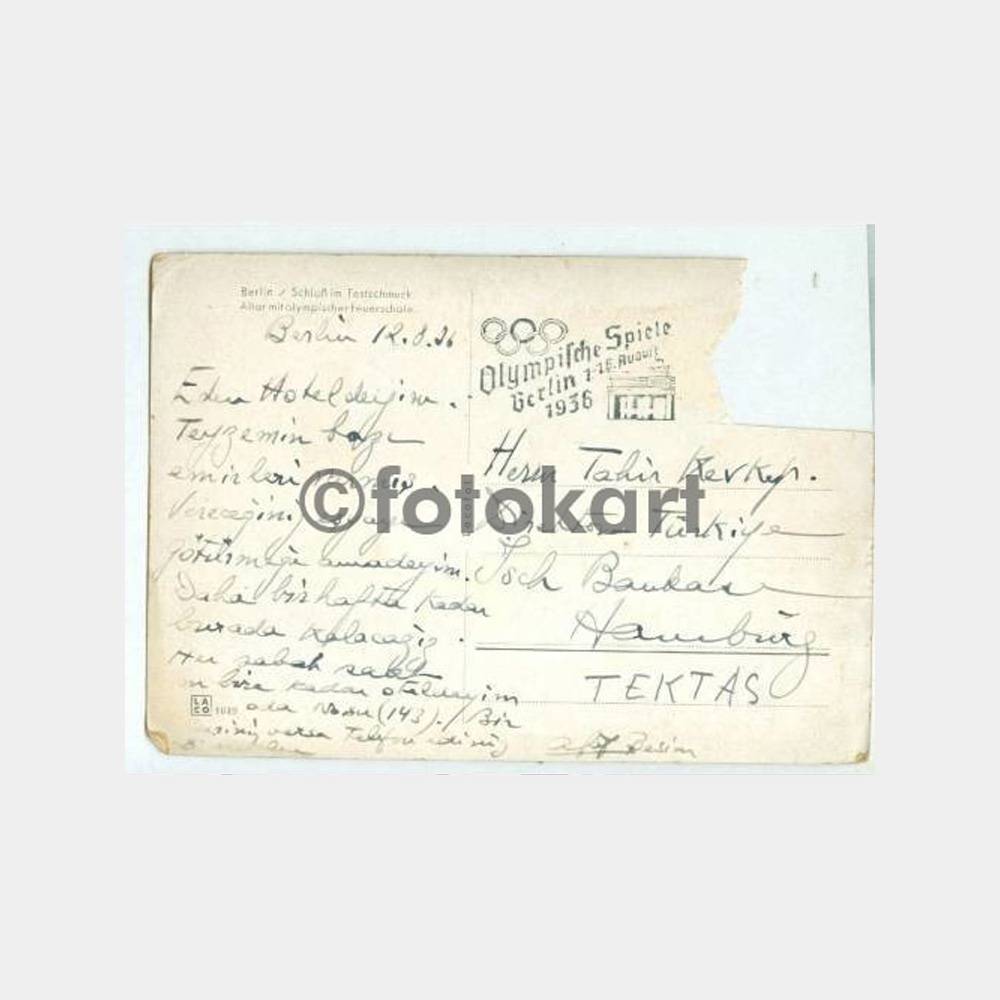 Berlin / Schloß im Festschmuck
Altar mit olympischer Feuerschale.
Berlin 12.8.36
Eden Hoteldeyim.
Teyzemin bazı
emirleri
Vereceğiniz
götürmeğe amadeyim.
Daha bir hafta kadar
burada kalacağız.
Her sabah saat
on bire kadar oteldeyim
oda No su (143). / Bir
varsa telefon ediniz
LACO 1039
Olympische Spiele
Berlin 1.-16. August
1936
Herrn Tahir Kevkep.
Direktor Türkiye
Isch Bankası
Hamburg
TEKTAŞ
Besim
©fotokart